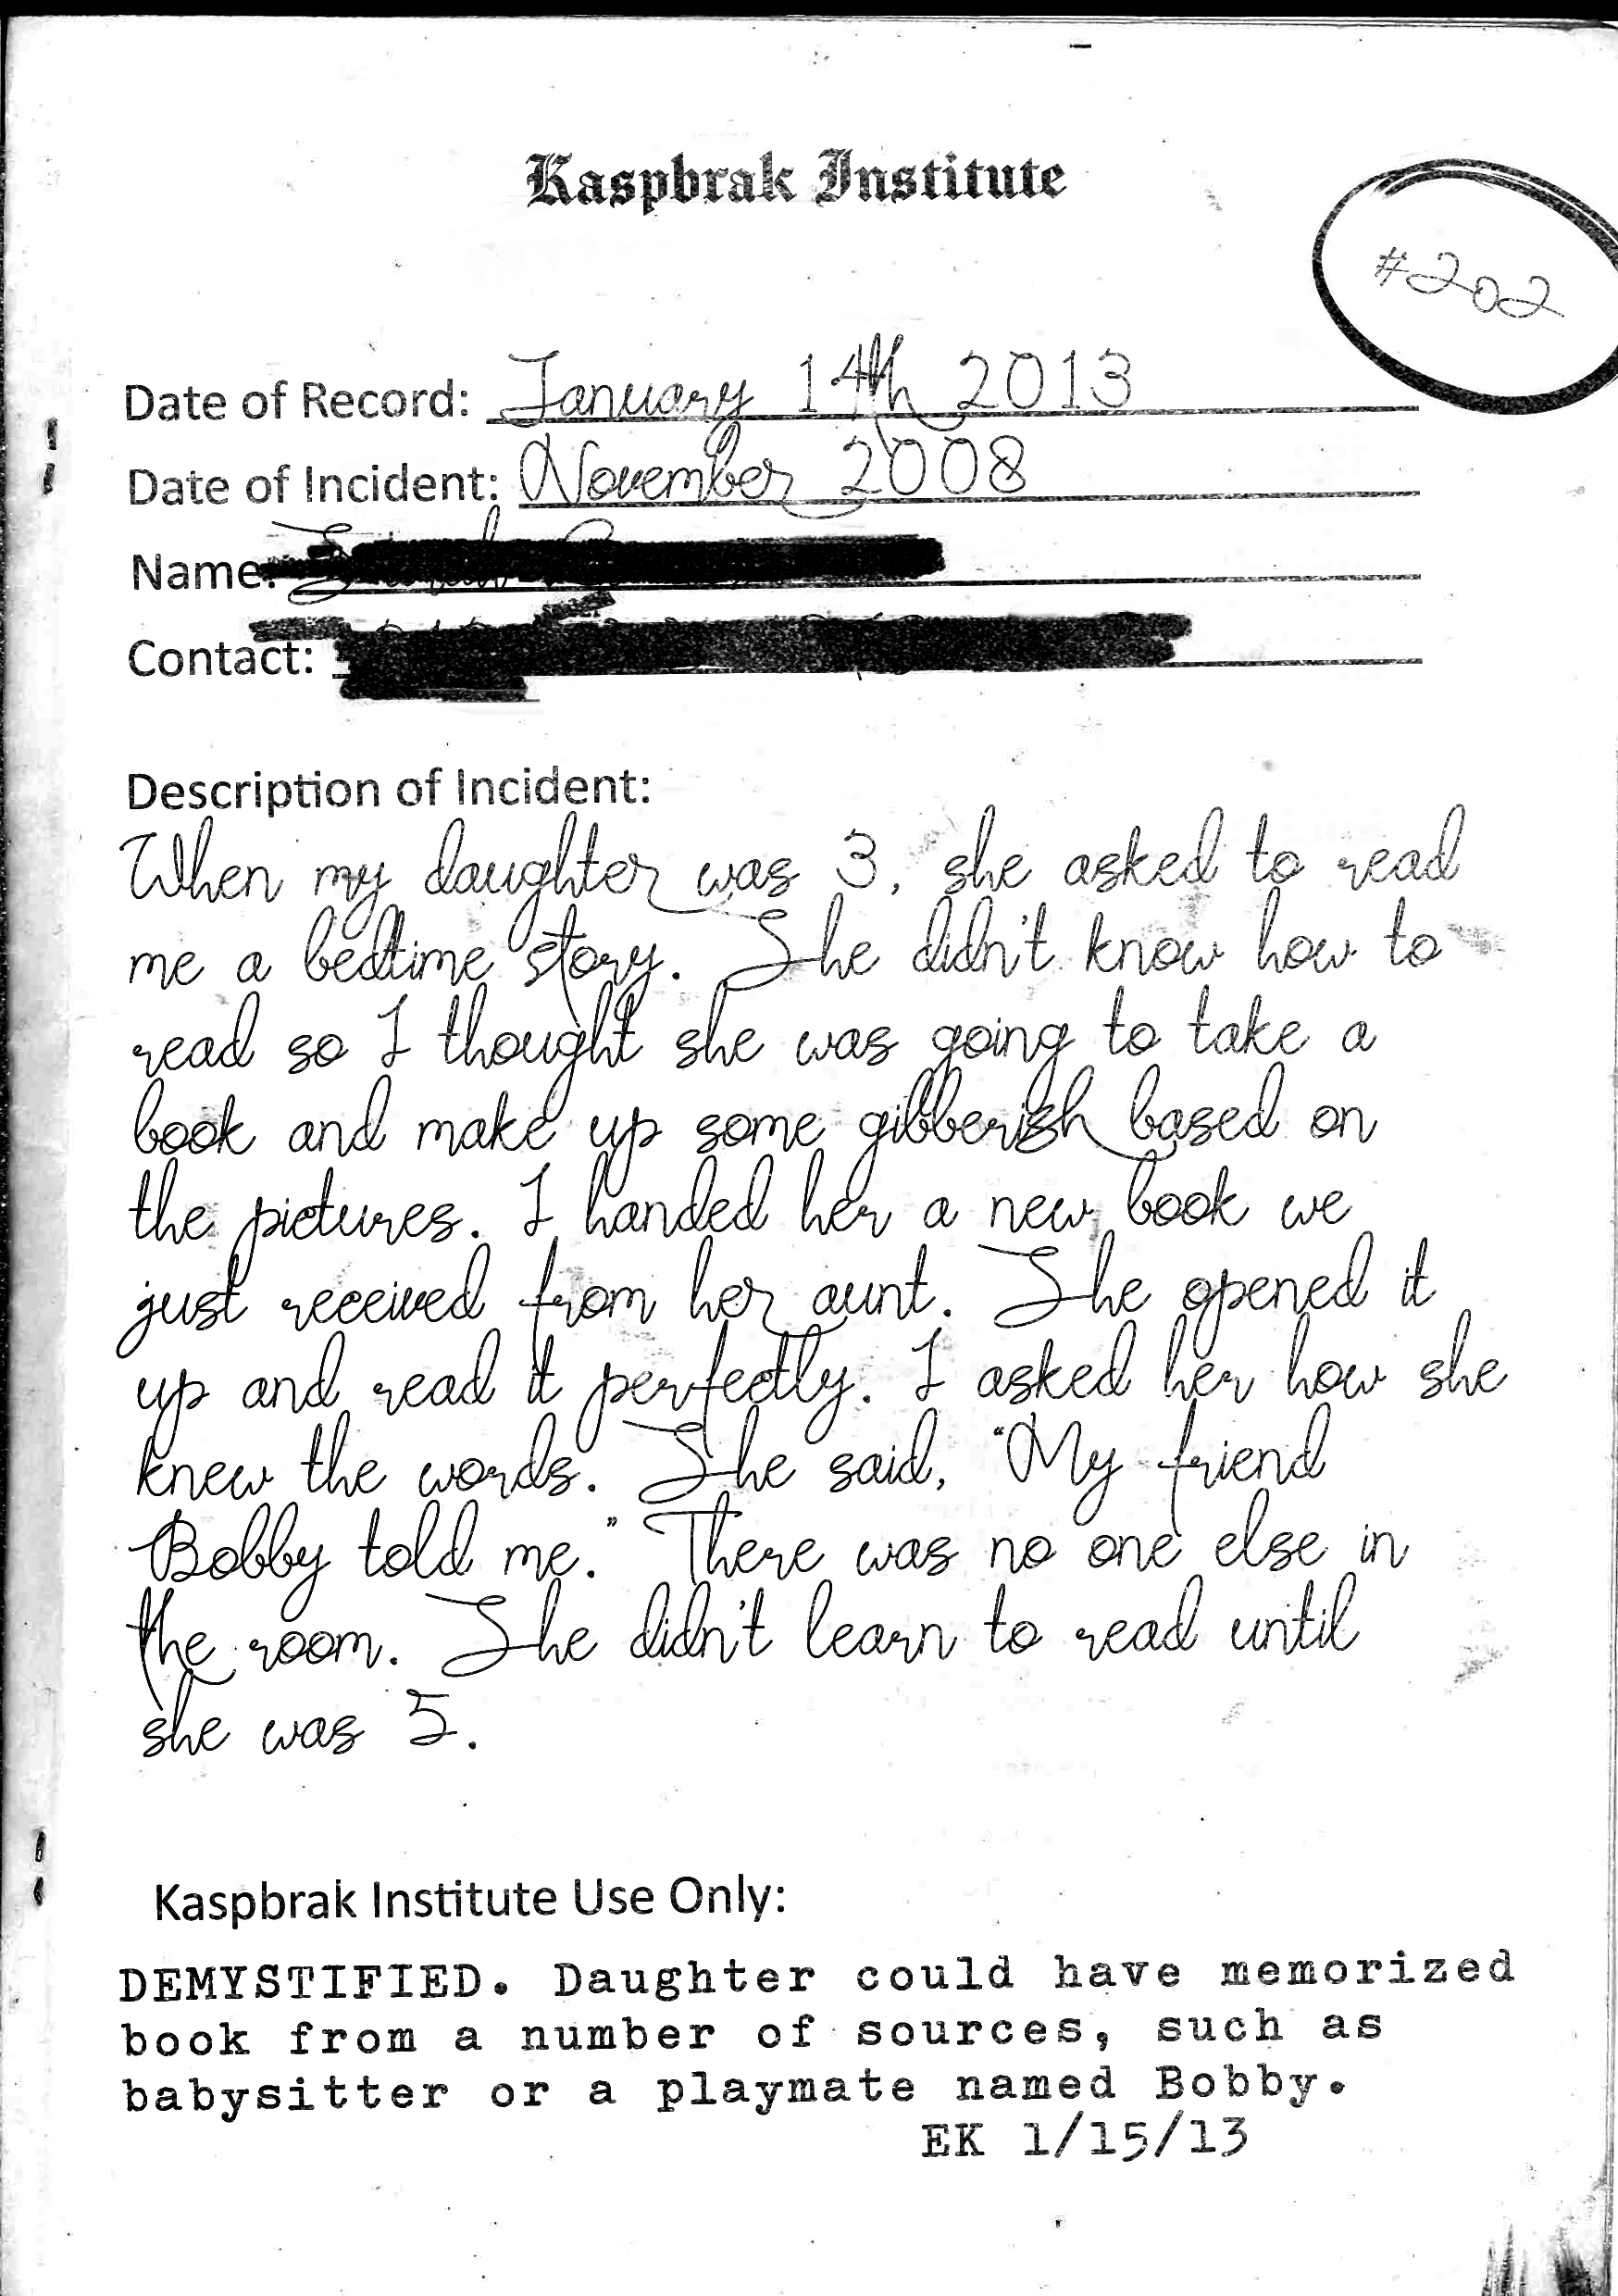 Kaspbrak Institute
#202
Date of Record: January 14th 2013
Date of Incident: November 2008
Name:
Contact:
Description of Incident:
When my daughter was 3, she asked to read
me a bedtime story. She didn't know how to
read so I thought she was going to take a
book and make up some gibberish based on
the pictures. I handed her a new book we
just received from her aunt. She opened it
up and read it perfectly. I asked her how she
knew the words. She said, "My friend
Bobby told me." There was no one else in
the room. She didn't learn to read until
she was 5.
Kaspbrak Institute Use Only:
DEMYSTIFIED. Daughter could have memorized
book from a number of sources, such as
babysitter or a playmate named Bobby.
EK 1/15/13